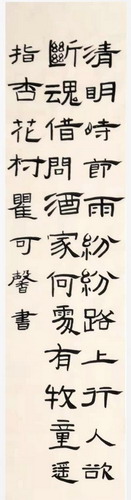 清明時節雨紛紛路上行人欲
斷魂借問酒家何處有牧童遥
指杏花村瞿可馨書